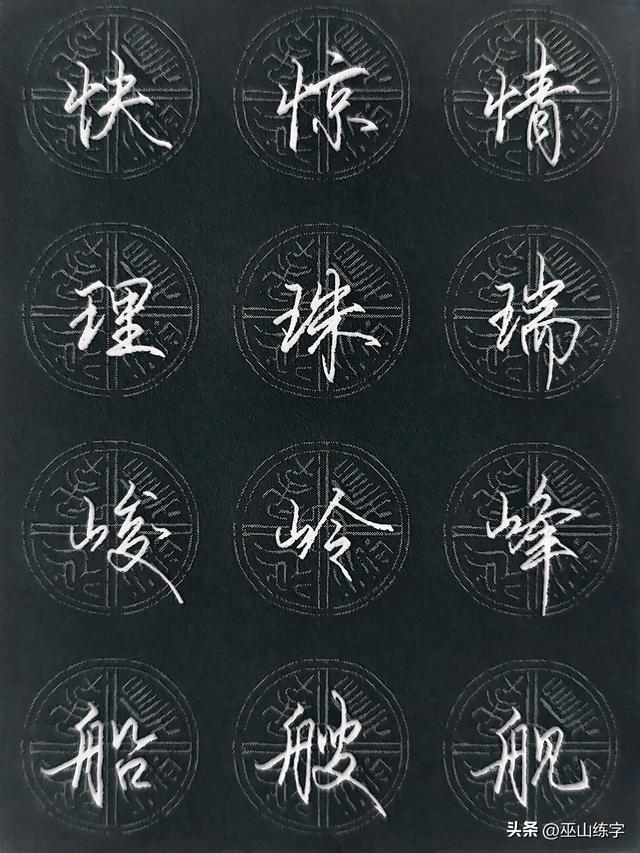 快 惊 情
理 珠 瑞
峻 岭 峰
船 艘 舰
头条 @巫山练字